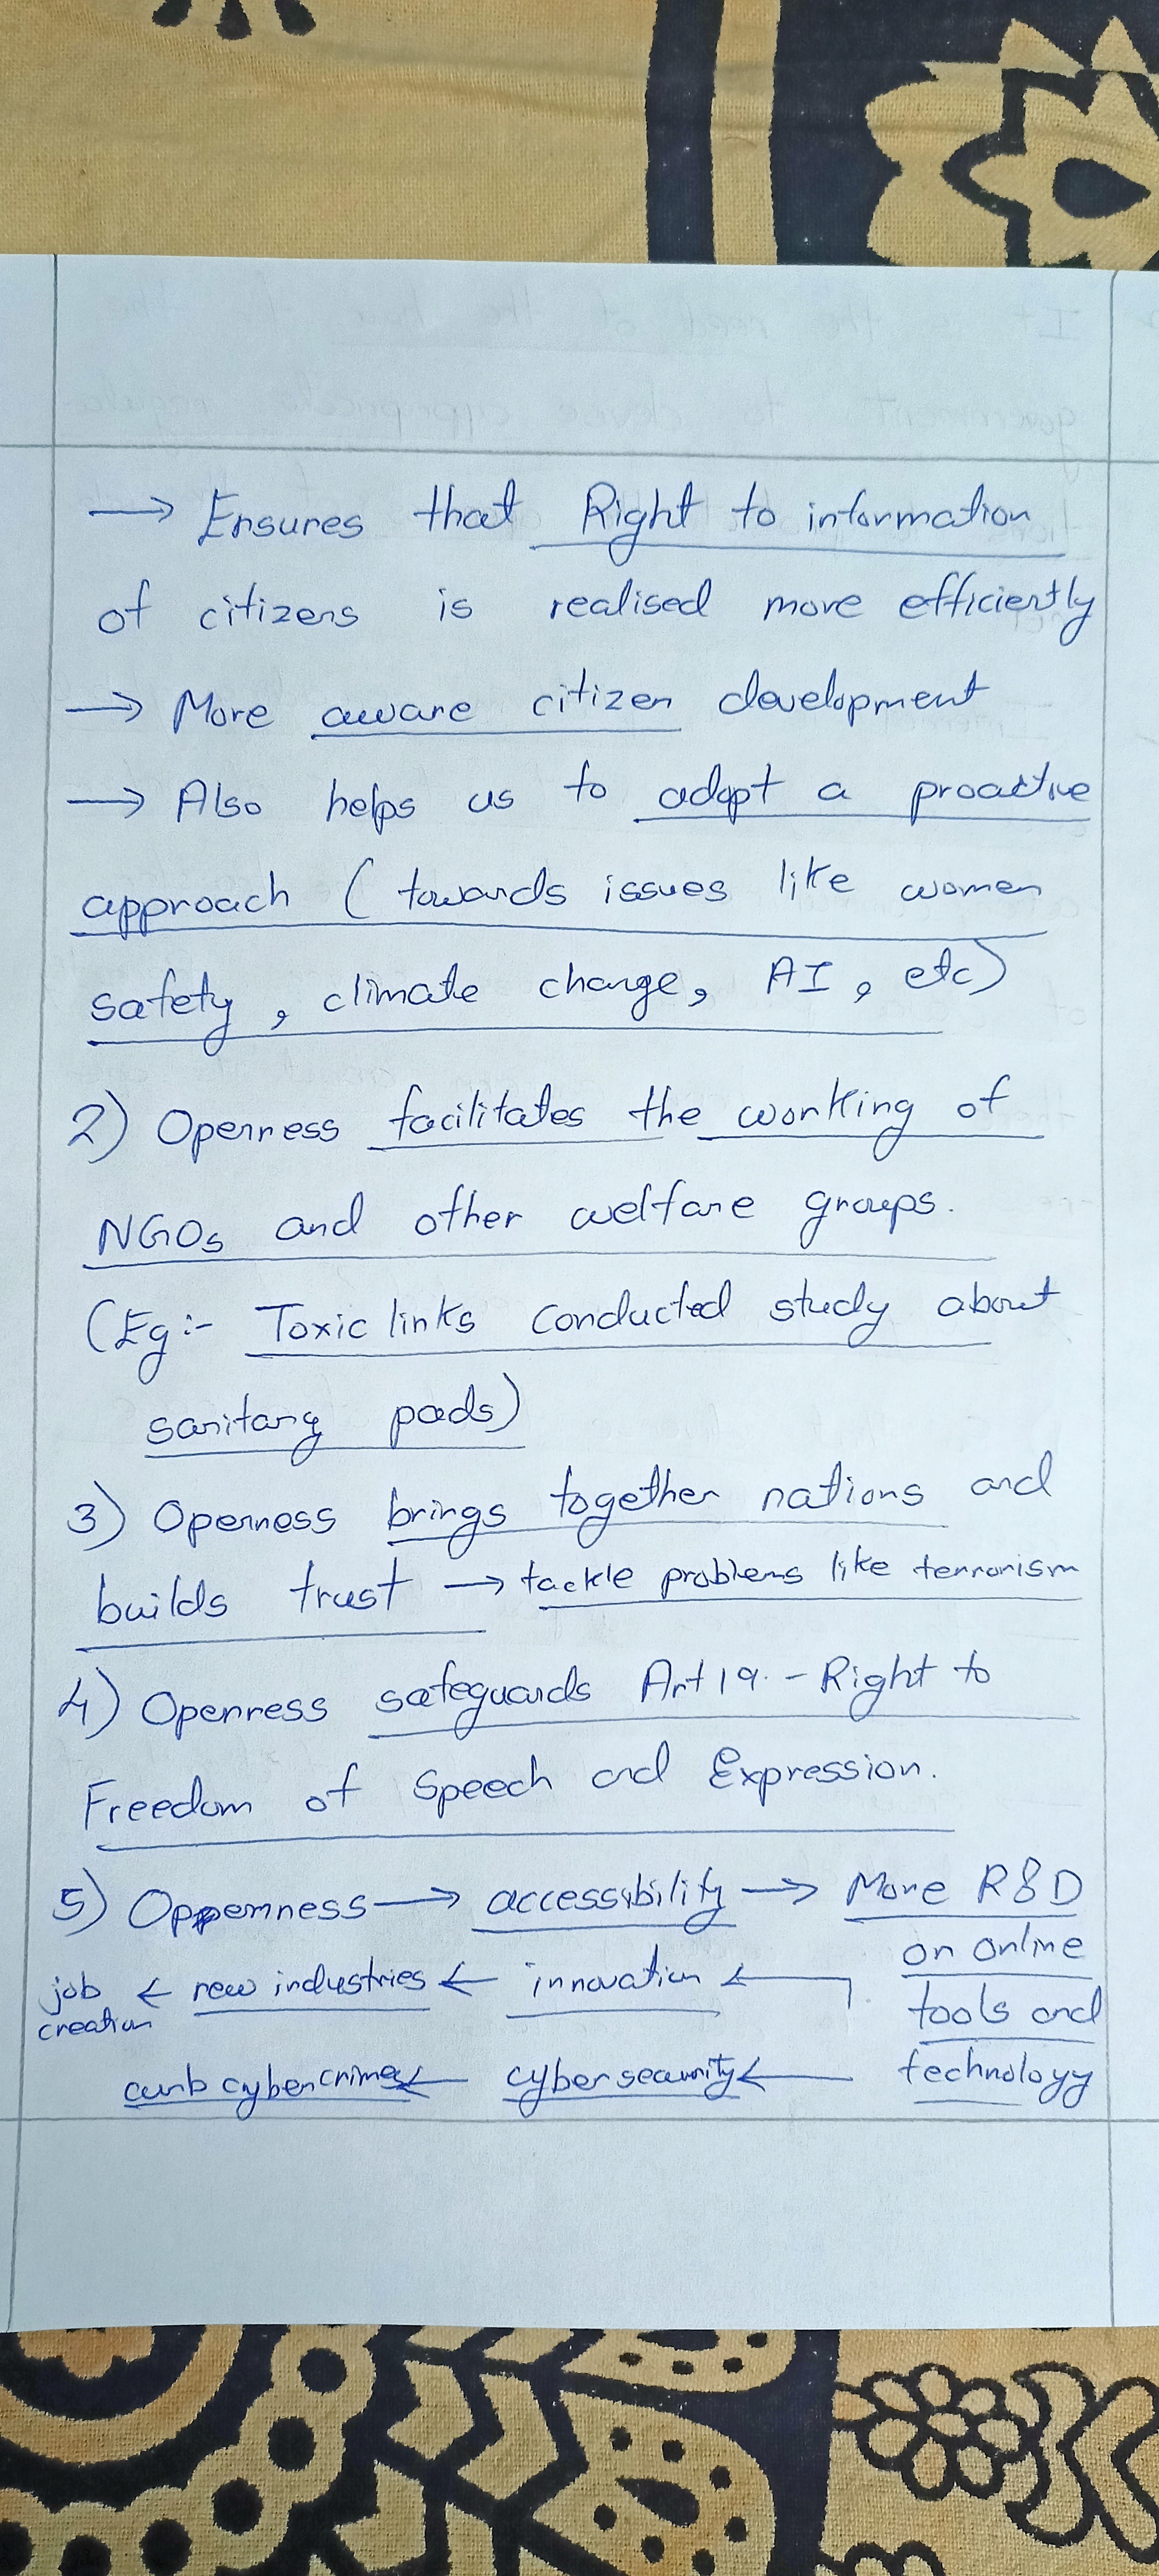 → Ensures that Right to information
of citizens is realised more efficiently
→ More aware citizen development
→ Also helps us to adopt a proactive
approach ( towards issues like women
safety, climate change, AI, etc)
2) Openness facilitates the working of
NGOs and other welfare groups.
(Eg:- Toxic links conducted study about
sanitary pads)
3) Openness brings together nations and
builds trust → tackle problems like terrorism
4) Openness safeguards Art 19. - Right to
Freedom of Speech and Expression.
5) Oppenness → accessibility → More R&D
on online
job ← new industries ← innovation ←
creation
tools and
curb cybercrimes ← cybersecurity ← technology